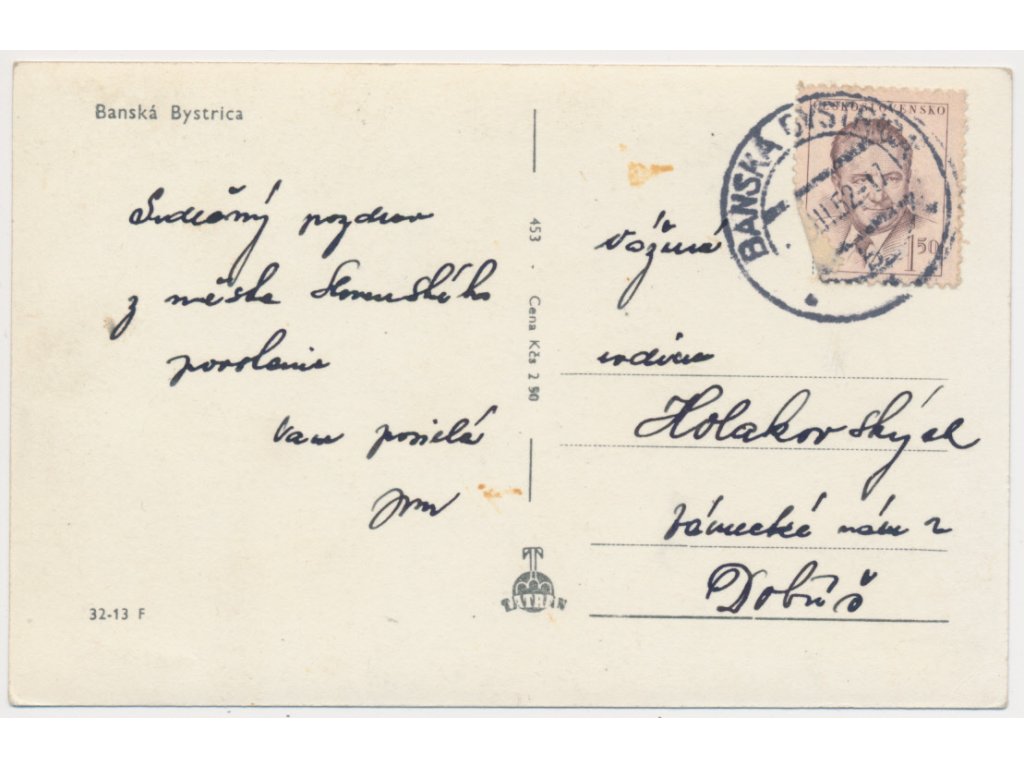 Banská Bystrica
Srdečný pozdrav
z města Slovenského
povstania
Vam posielá
453 · Cena Kčs 2 50
TATRAN
32-13 F
ČESKOSLOVENSKO
1 50
BANSKÁ BYSTRICA
Vážená
rodina
Holakovských
Zámecké nám 2
Dobříš